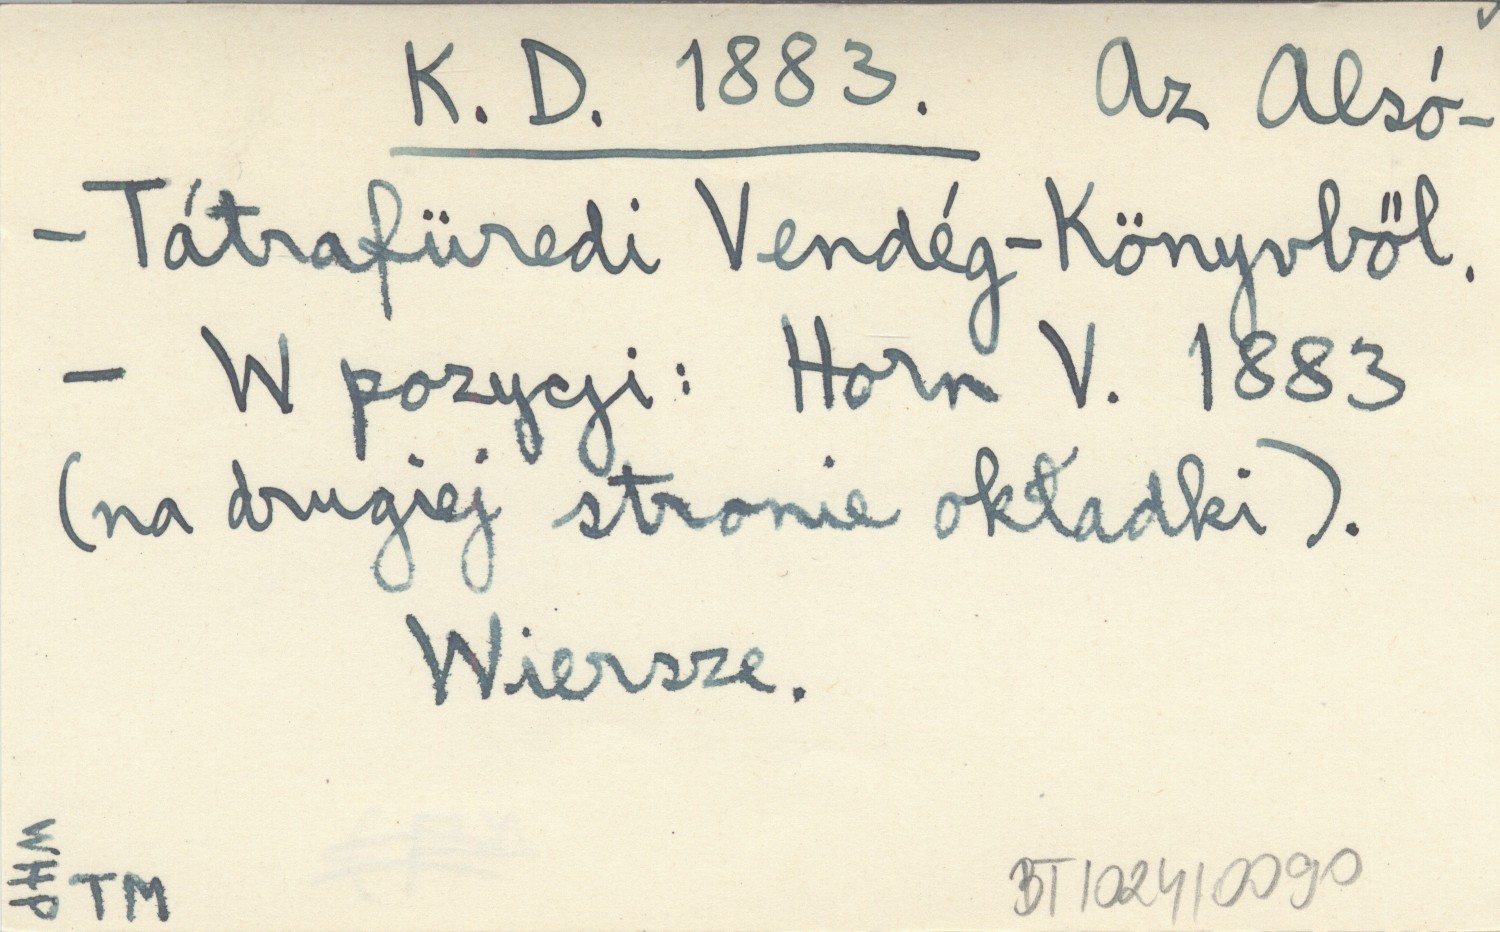 K. D. 1883. Az Alsó-
-Tátrafüredi Vendég-Könyvből.
- W pozycji: Horn V. 1883
(na drugiej stronie okładki).
Wiersze.
WHP
TM
BT/024/0090